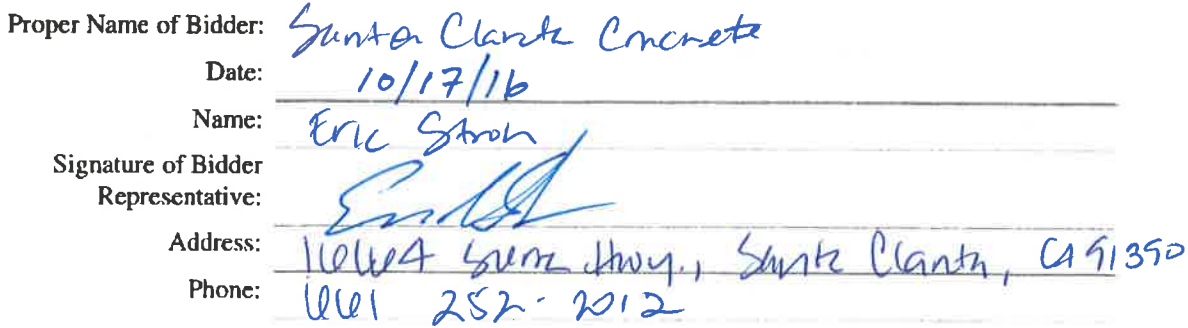 Proper Name of Bidder: Santa Clarita Concrete
Date: 10/17/16
Name: Eric Stroh
Signature of Bidder
Representative:
Address: 16164 Sierra Hwy., Santa Clarita, CA 91390
Phone: 661 252-2012